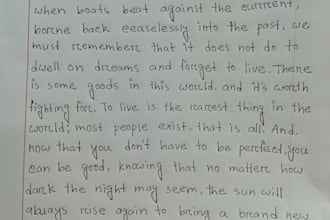 when boats beat against the current,
borne back ceaselessly into the past, we
must remember that it does not do to
dwell on dreams and forget to live. There
is some goods in this world, and it's worth
fighting for. To live is the rarest thing in the
world; most people exist, that is all. And
now that you don't have to be perfect, you
can be good, knowing that no matter how
dark the night may seem, the sun will
always rise again to bring a brand new